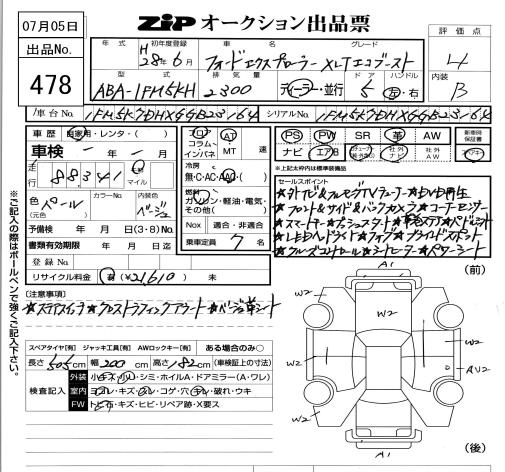 07月05日
ZIP オークション出品票
出品No.
478
年式 初年度登録 車名 グレード
H 28年6月 フォードエクスプローラー XLTエコブースト
型式 排気量 ドア ハンドル
ABA-1FM5KH 2300 ディーラー・並行 5 左・右
評価点
4
内装
B
車台No. 1FM5K7DHXGGB23164
シリアルNo. 1FM5K7DHXGGB23164
車歴 自家用・レンタ・( )
車検 - 年 - 月
走行 88,341 km マイル
色 パール (元色)
カラーNo.
内装色 ベージュ
予備検 年 月 日(3・8)No.
書類有効期限 年 月 日迄
登録No.
リサイクル料金 済 ¥21,610 未
フロア コラム・インパネ AT MT 速
冷房 無・C・AC・AAC・( )
燃料 ガソリン・軽油・電気・その他( )
Nox 適合・非適合
乗車定員 7 名
PS PW SR 革 AW 新車時保証書
ナビ エアB 社外ナビ 社外AW
※上記太枠内は標準装備品
セールスポイント
★外ナビ&フルセグTVチューナー★DVD再生
★フロント&サイド&バックカメラ★コーナーセンサー
★スマートキー★プッシュスタート★
★LEDヘッドライト★フォグ★ブラインドスポット
★クルーズコントロール★シートヒーター★パワーシート
[注意事項]
★クロストラフィックアラート★ベージュ革シート
スペアタイヤ[有] ジャッキ工具[有] AWロックキー[有] ある場合のみ○
長さ 505cm 幅 200cm 高さ 182cm (車検証上の寸法)
検査記入
外装 小キズ・小ヘコ・シミ・ホイルA・ドアミラー(A・ワレ)
室内 ヨゴレ・キズ・スレ・コゲ・穴・キレ・破れ・ウキ
FW トビ石・キズ・ヒビ・リペア跡・X要ス
※ご記入の際はボールペンで強くご記入下さい。
(前)
A1
W2
W2
W2
W2
W2
AU2
W2
W2
A1
(後)